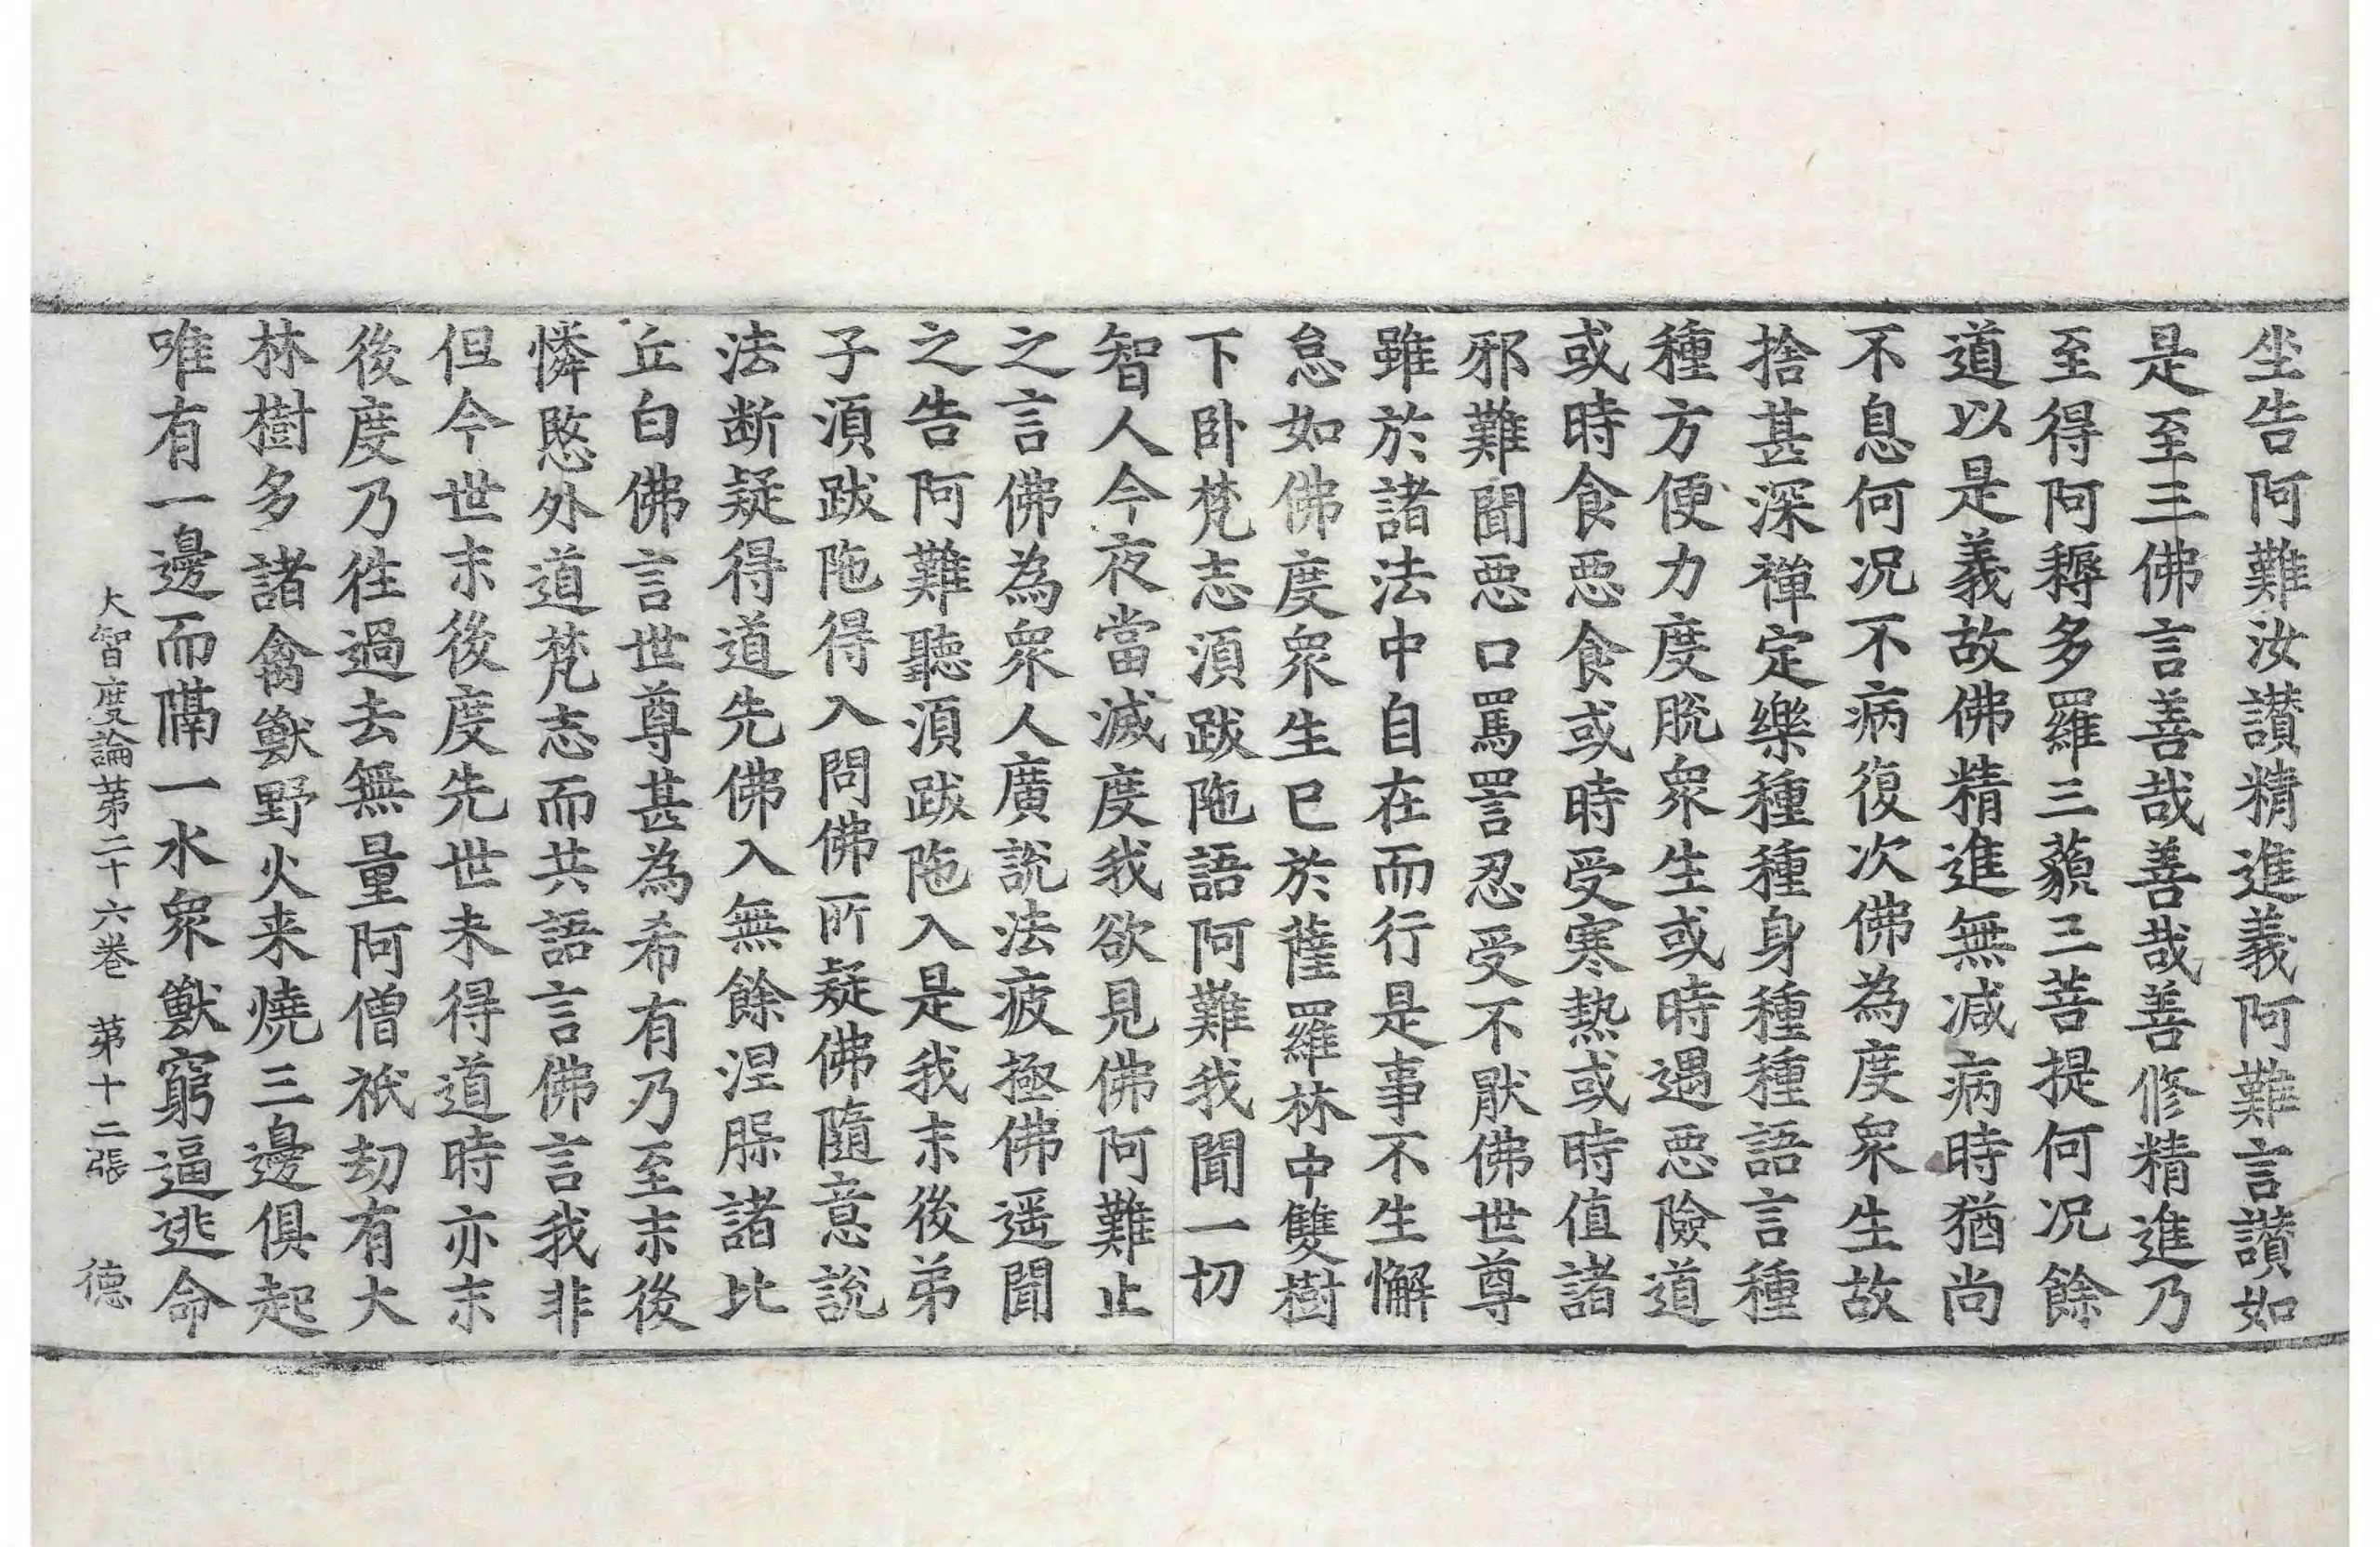 坐告阿難汝讃精進義阿難言讃如
是至三佛言善哉善哉善修精進乃
至得阿耨多羅三藐三菩提何况餘
道以是義故佛精進無減病時猶尚
不息何况不病復次佛為度衆生故
捨甚深禪定樂種種身種種語言種
種方便力度脫衆生或時遇惡險道
或時食惡食或時受寒熱或時值諸
邪難聞惡口罵詈忍受不猒佛世尊
雖於諸法中自在而行是事不生懈
怠如佛度衆生已於薩羅林中雙樹
下卧梵志湏跋陁語阿難我聞一切
智人今夜當滅度我欲見佛阿難止
之言佛為衆人廣說法疲極佛遥聞
之告阿難聽湏跋陁入是我末後弟
子湏跋陁得入問佛所疑佛隨意說
法断疑得道先佛入無餘涅槃諸比
丘白佛言世尊甚為希有乃至末後
憐愍外道梵志而共語言佛言我非
但今世末後度先世未得道時亦末
後度乃徃過去無量阿僧祇劫有大
林樹多諸禽獸野火来燒三邊俱起
唯有一邊而隔一水衆獸窮逼逃命
大智度論苐二十六卷 苐十二張 德